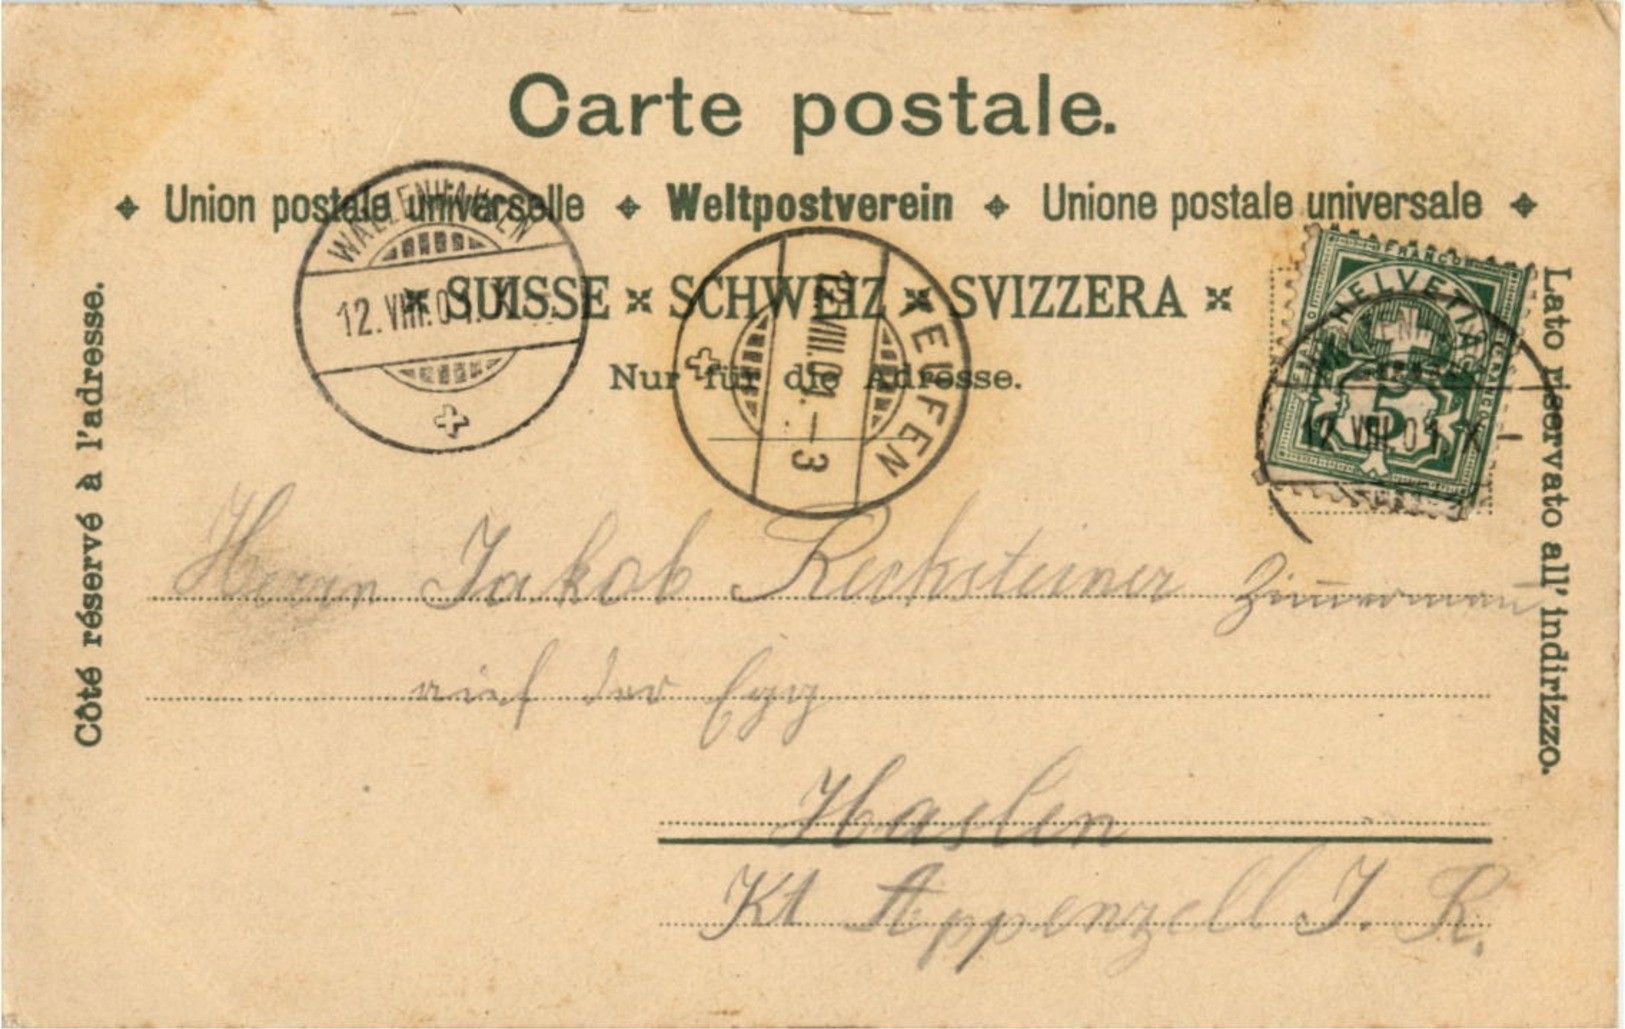 Carte postale.
Union postale universelle Weltpostverein Unione postale universale
SUISSE SCHWEIZ SVIZZERA
Nur für die Adresse.
Côté réservé à l'adresse.
Lato riservato all' indirizzo.
WALZENHAUSEN
12. VIII. 01. X -
TEUFEN
12. VIII. 01. - 3
FRANCO
HELVETIA
5
12. VIII. 01. X -
Herrn Jakob Rechsteiner Zimmermann
auf der Egg
Haslen
Kt Appenzell I. R.